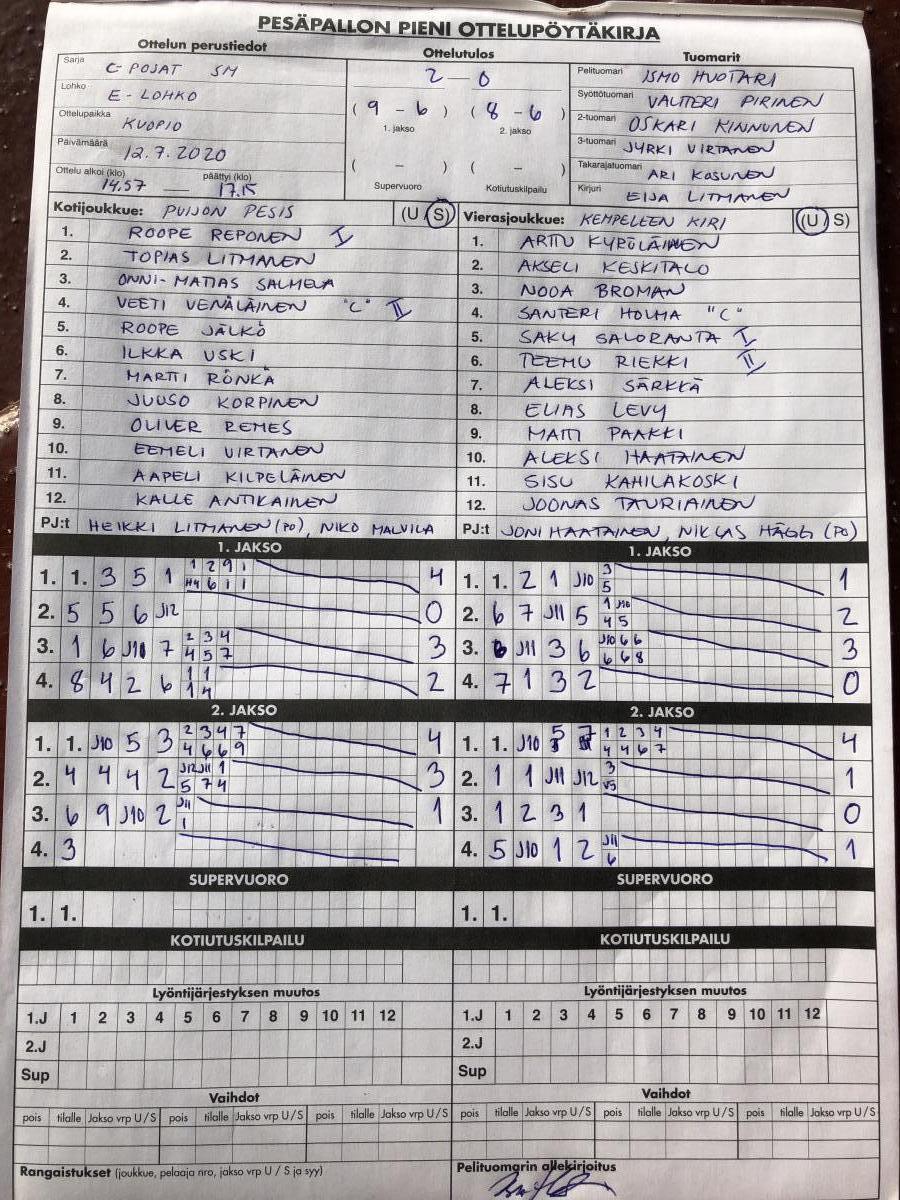 PESÄPALLON PIENI OTTELUPÖYTÄKIRJA
Ottelun perustiedot
Sarja C-POJAT SM
Lohko E-LOHKO
Ottelupaikka KUOPIO
Päivämäärä 12.7.2020
Ottelu alkoi (klo) päättyi (klo)
14.57 — 17.15
Ottelutulos
2 – 0
( 9 - 6 ) ( 8 - 6 )
1. jakso 2. jakso
( – ) ( – )
Supervuoro Kotiutuskilpailu
Tuomarit
Pelituomari ISMO HUOTARI
Syöttötuomari VALTTERI PIRINEN
2-tuomari OSKARI KINNUNEN
3-tuomari JYRKI VIRTANEN
Takarajatuomari ARI KOSUNEN
Kirjuri EIJA LITMANEN
Kotijoukkue: PUIJON PESIS (U S)
1. ROOPE REPONEN I
2. TOPIAS LITMANEN
3. ONNI-MATIAS SALMELA
4. VEETI VENÄLÄINEN "C" II
5. ROOPE JALKÖ
6. ILKKA USKI
7. MARTTI RÖNKÄ
8. JUUSO KORPINEN
9. OLIVER REMES
10. EEMELI VIRTANEN
11. AAPELI KILPELÄINEN
12. KALLE ANTIKAINEN
PJ:t HEIKKI LITMANEN (PO), NIKO MALVILA
Vierasjoukkue: KEMPELEEN KIRI (U S)
1. ARTTU KYPÖLÄINEN
2. AKSELI KESKITALO
3. NOOA BROMAN
4. SANTERI HOLMA "C"
5. SAKU SALORANTA I
6. TEEMU RIEKKI II
7. ALEKSI SÄRKKÄ
8. ELIAS LEVY
9. MATTI PAAKKI
10. ALEKSI HAATAINEN
11. SISU KAHILAKOSKI
12. JOONAS TAURIAINEN
PJ:t JONI HAATAINEN, NIKLAS HÄGG (PO)
1. JAKSO
1. 1. 3 5 1 1 2 9 1 4
H4 6 1 1
2. 5 5 6 J12 0
3. 1 6 J10 7 2 3 4 3
4 5 7
4. 8 4 2 6 1 1 2
1 4
1. JAKSO
1. 1. 2 1 J10 3 1
5
2. 6 7 J11 5 1 J10 2
4 5
3. J11 3 6 J10 6 6 3
6 6 8
4. 7 1 3 2 0
2. JAKSO
1. 1. J10 5 3 2 3 4 7 4
4 6 6 9
2. 4 4 4 2 J12 J11 1 3
5 7 4
3. 6 9 J10 2 J11 1
1
4. 3
2. JAKSO
1. 1. J10 5 7 1 2 3 4 4
4 4 6 7
2. 1 1 J11 J12 3 1
V5
3. 1 2 3 1 0
4. 5 J10 1 2 J11 1
6
SUPERVUORO SUPERVUORO
1. 1. 1. 1.
KOTIUTUSKILPAILU KOTIUTUSKILPAILU
Lyöntijärjestyksen muutos Lyöntijärjestyksen muutos
1.J 1 2 3 4 5 6 7 8 9 10 11 12 1.J 1 2 3 4 5 6 7 8 9 10 11 12
2.J 2.J
Sup Sup
Vaihdot Vaihdot
pois tilalle Jakso vrp U/S pois tilalle Jakso vrp U/S pois tilalle Jakso vrp U/S pois tilalle Jakso vrp U/S pois tilalle Jakso vrp U/S pois tilalle Jakso vrp U/S
Rangaistukset (joukkue, pelaaja nro, jakso vrp U / S ja syy) Pelituomarin allekirjoitus